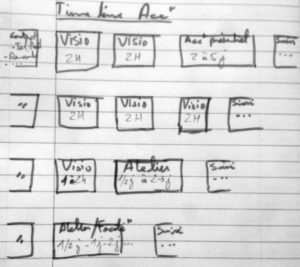 Time line Accⁿ
Visio
2H
Visio
2H
Accⁿ présentiel
2 à 5j
Suivi
...
"
Visio
2H
Visio
2H
Visio
2H
Suivi
...
"
Visio
2H
Atelier
1/2j à 2-3j
Suivi
...
"
Atelier/Facilitⁿ
1/2j - 1j - 2j ...
Suivi
...